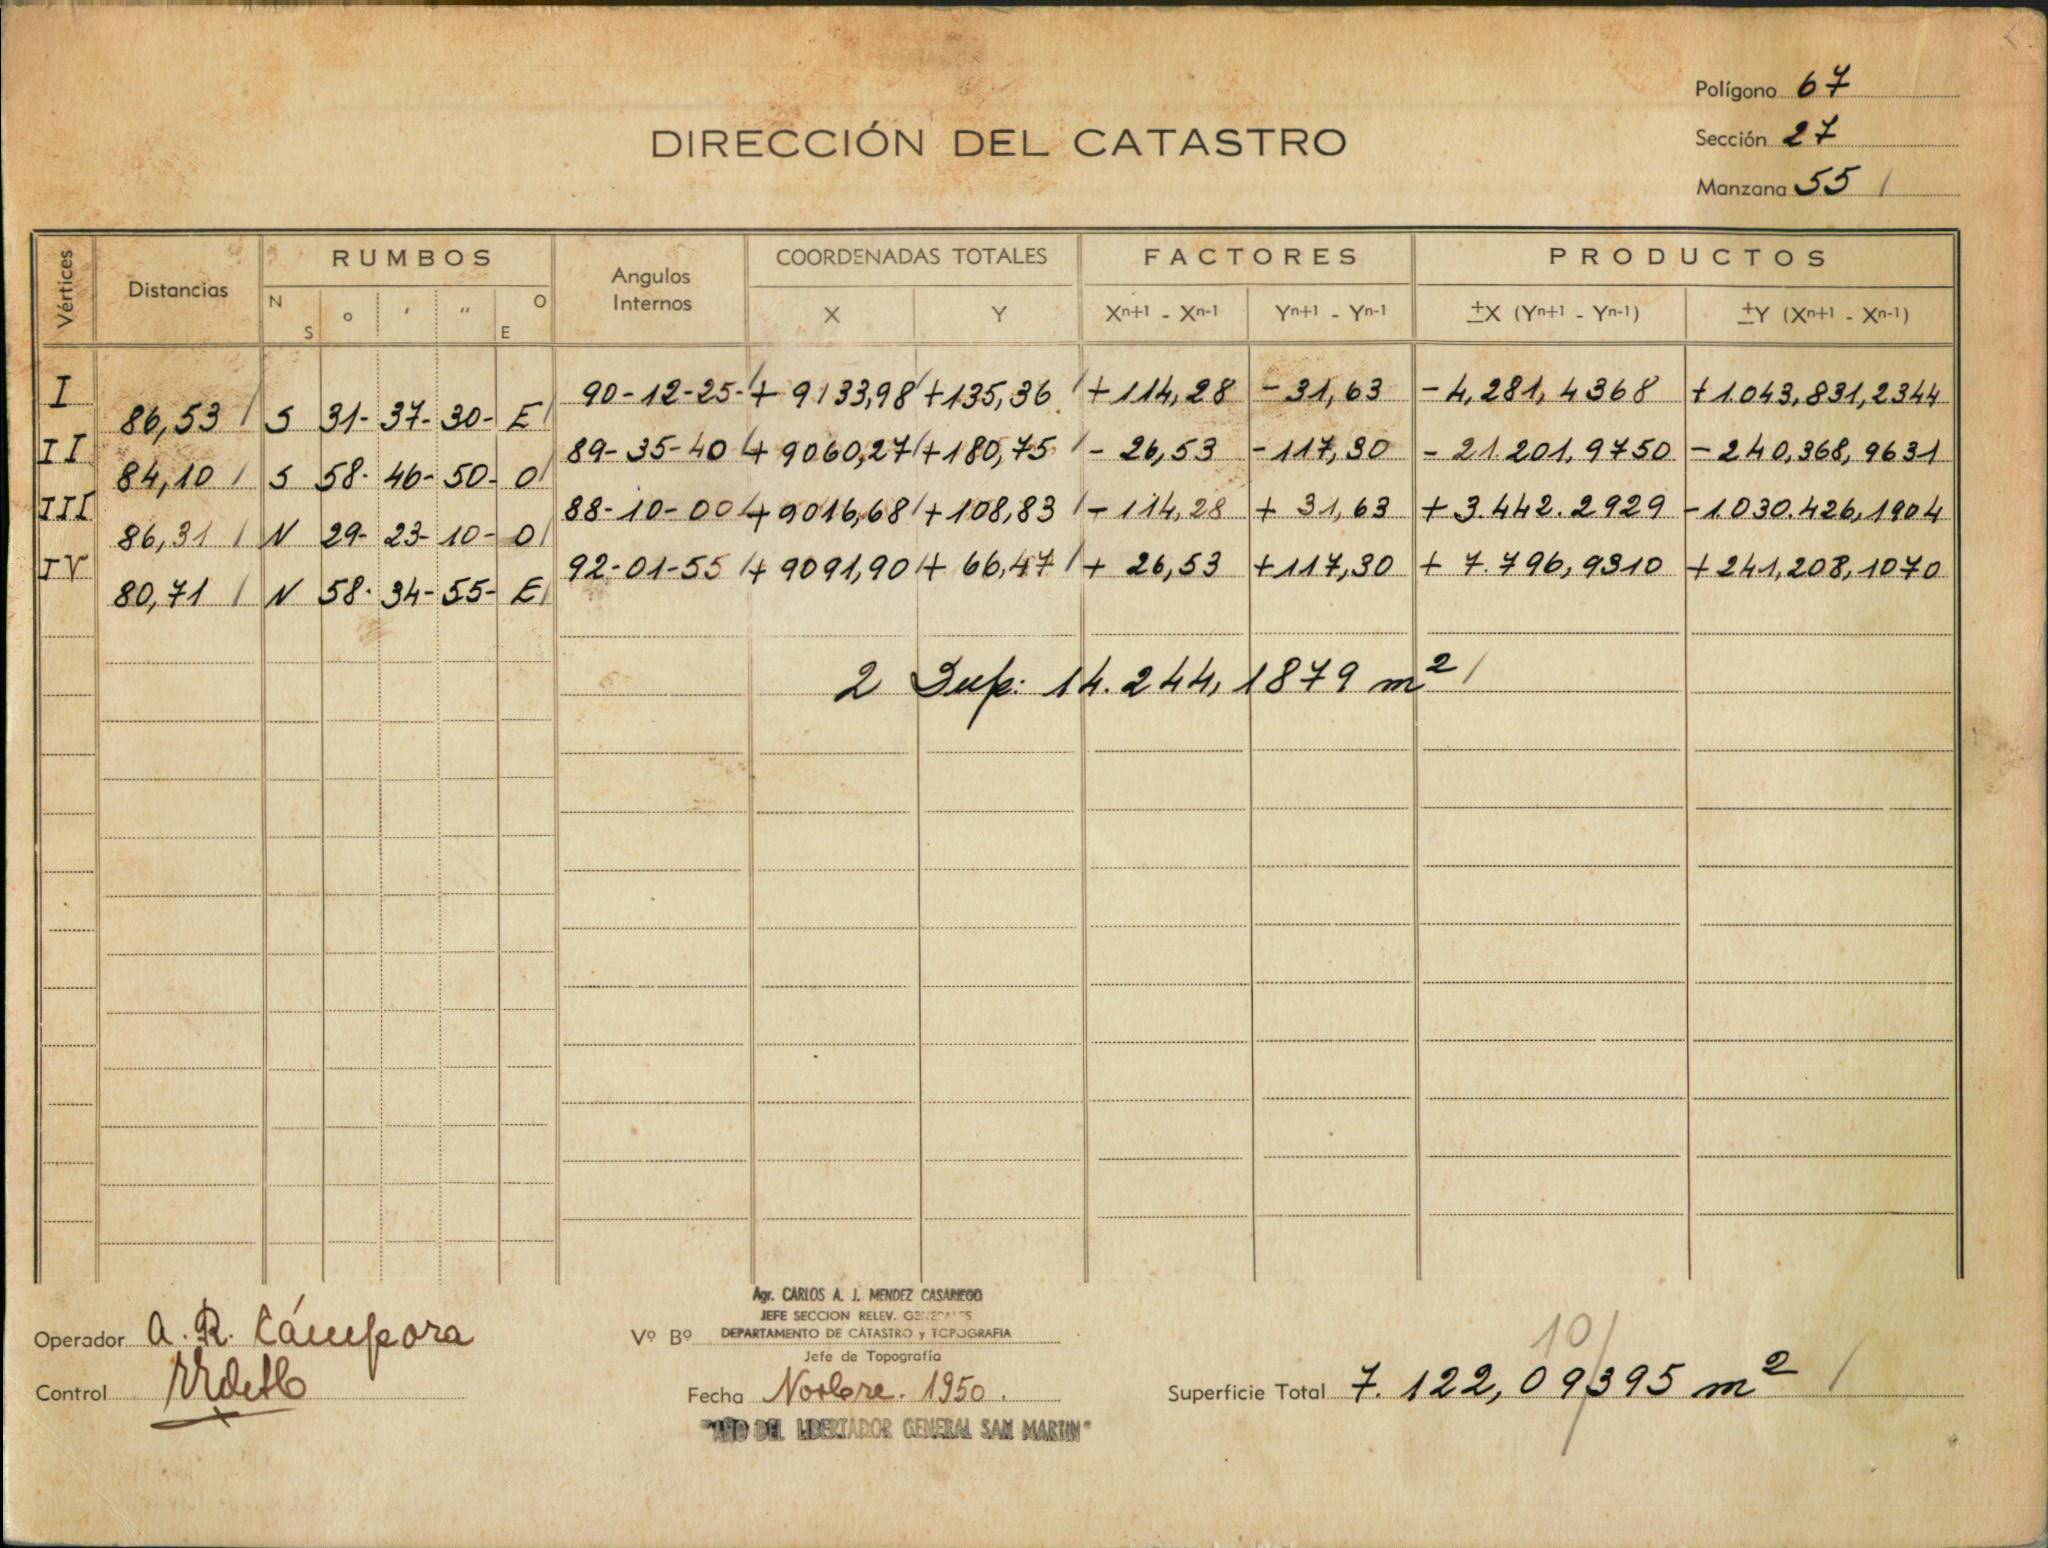 Polígono 67
DIRECCIÓN DEL CATASTRO
Sección 27
Manzana 55 /
Vértices Distancias RUMBOS Angulos Internos COORDENADAS TOTALES FACTORES PRODUCTOS
N S ° ' " O E X Y Xn+1 - Xn-1 Yn+1 - Yn-1 ±X (Yn+1 - Yn-1) ±Y (Xn+1 - Xn-1)
I 90-12-25- + 9133,98 +135,36 +114,28 -31,63 -4,281,4368 +1.043,831,2344
86,53 S 31- 37- 30- E
II 89-35-40 + 9060,27 +180,75 - 26,53 -117,30 - 21.201,9750 -240,368,9631
84,10 S 58- 46- 50- O
III 88-10-00 +9016,68 +108,83 - 114,28 + 31,63 + 3.442.2929 -1.030.426,1904
86,31 N 29- 23- 10- O
IV 92-01-55 + 9091,90 + 66,47 + 26,53 +117,30 + 7.796,9310 +241,208,1070
80,71 N 58- 34- 55- E
2 Sup: 14.244,1879 m² /
Agr. CARLOS A. J. MENDEZ CASARIEGO
JEFE SECCION RELEV. GENERALES
Operador A. R. Cámpora Vº Bº DEPARTAMENTO DE CATASTRO y TOPOGRAFIA
Jefe de Topografía
10/
Control Fecha Novbre. 1950. Superficie Total 7.122,09395 m² /
"AÑO DEL LIBERTADOR GENERAL SAN MARTIN"